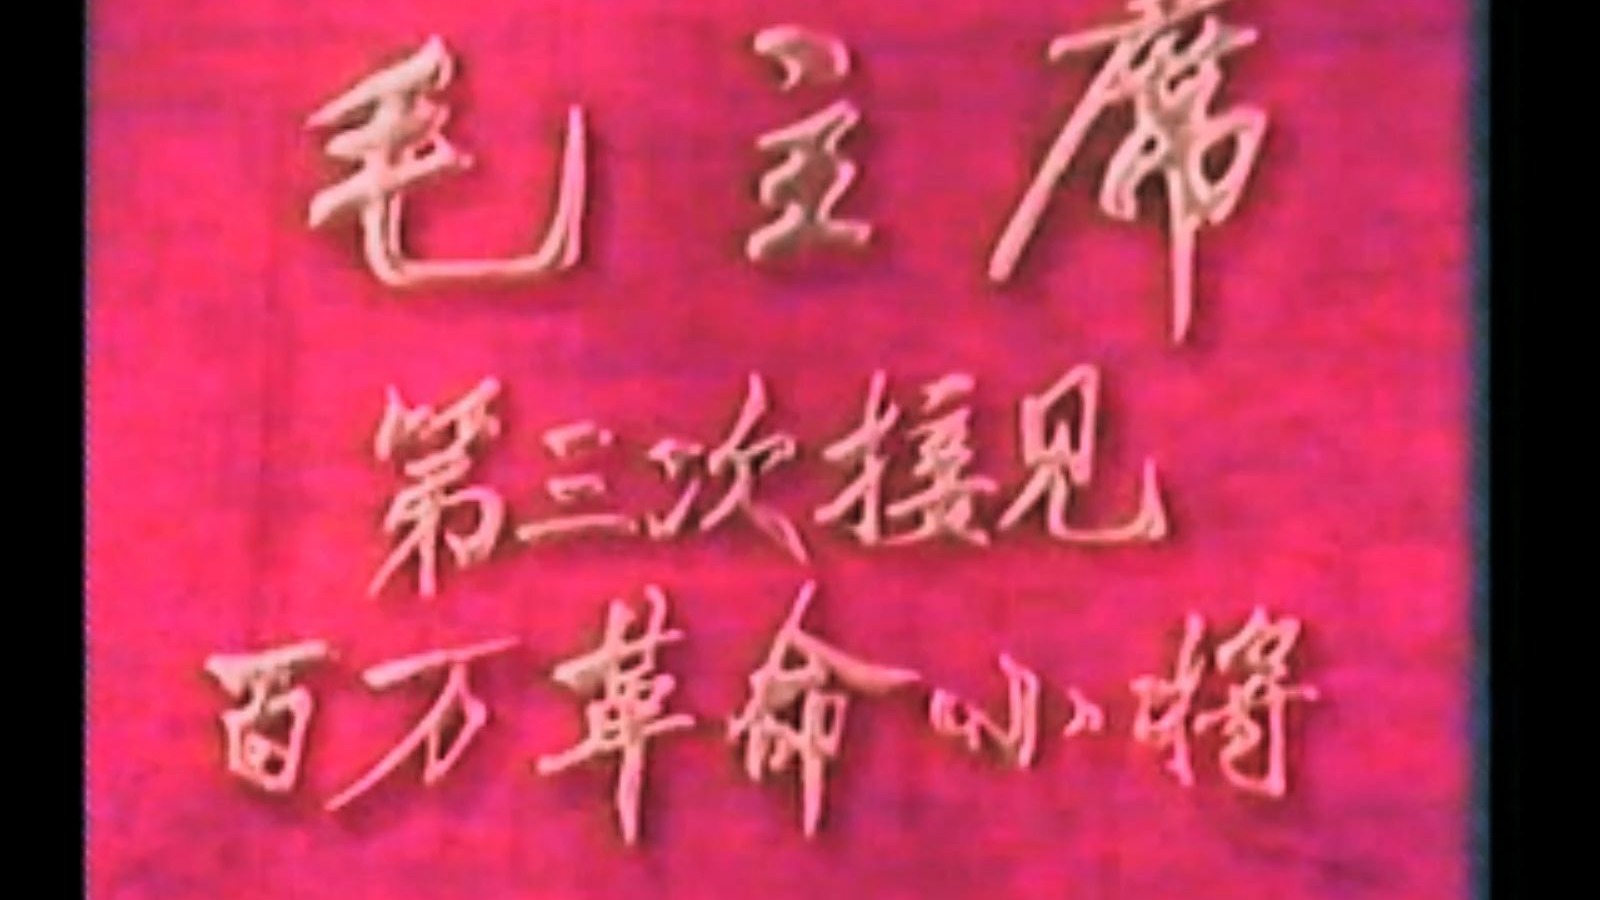 毛主席
第三次接见
百万革命小将